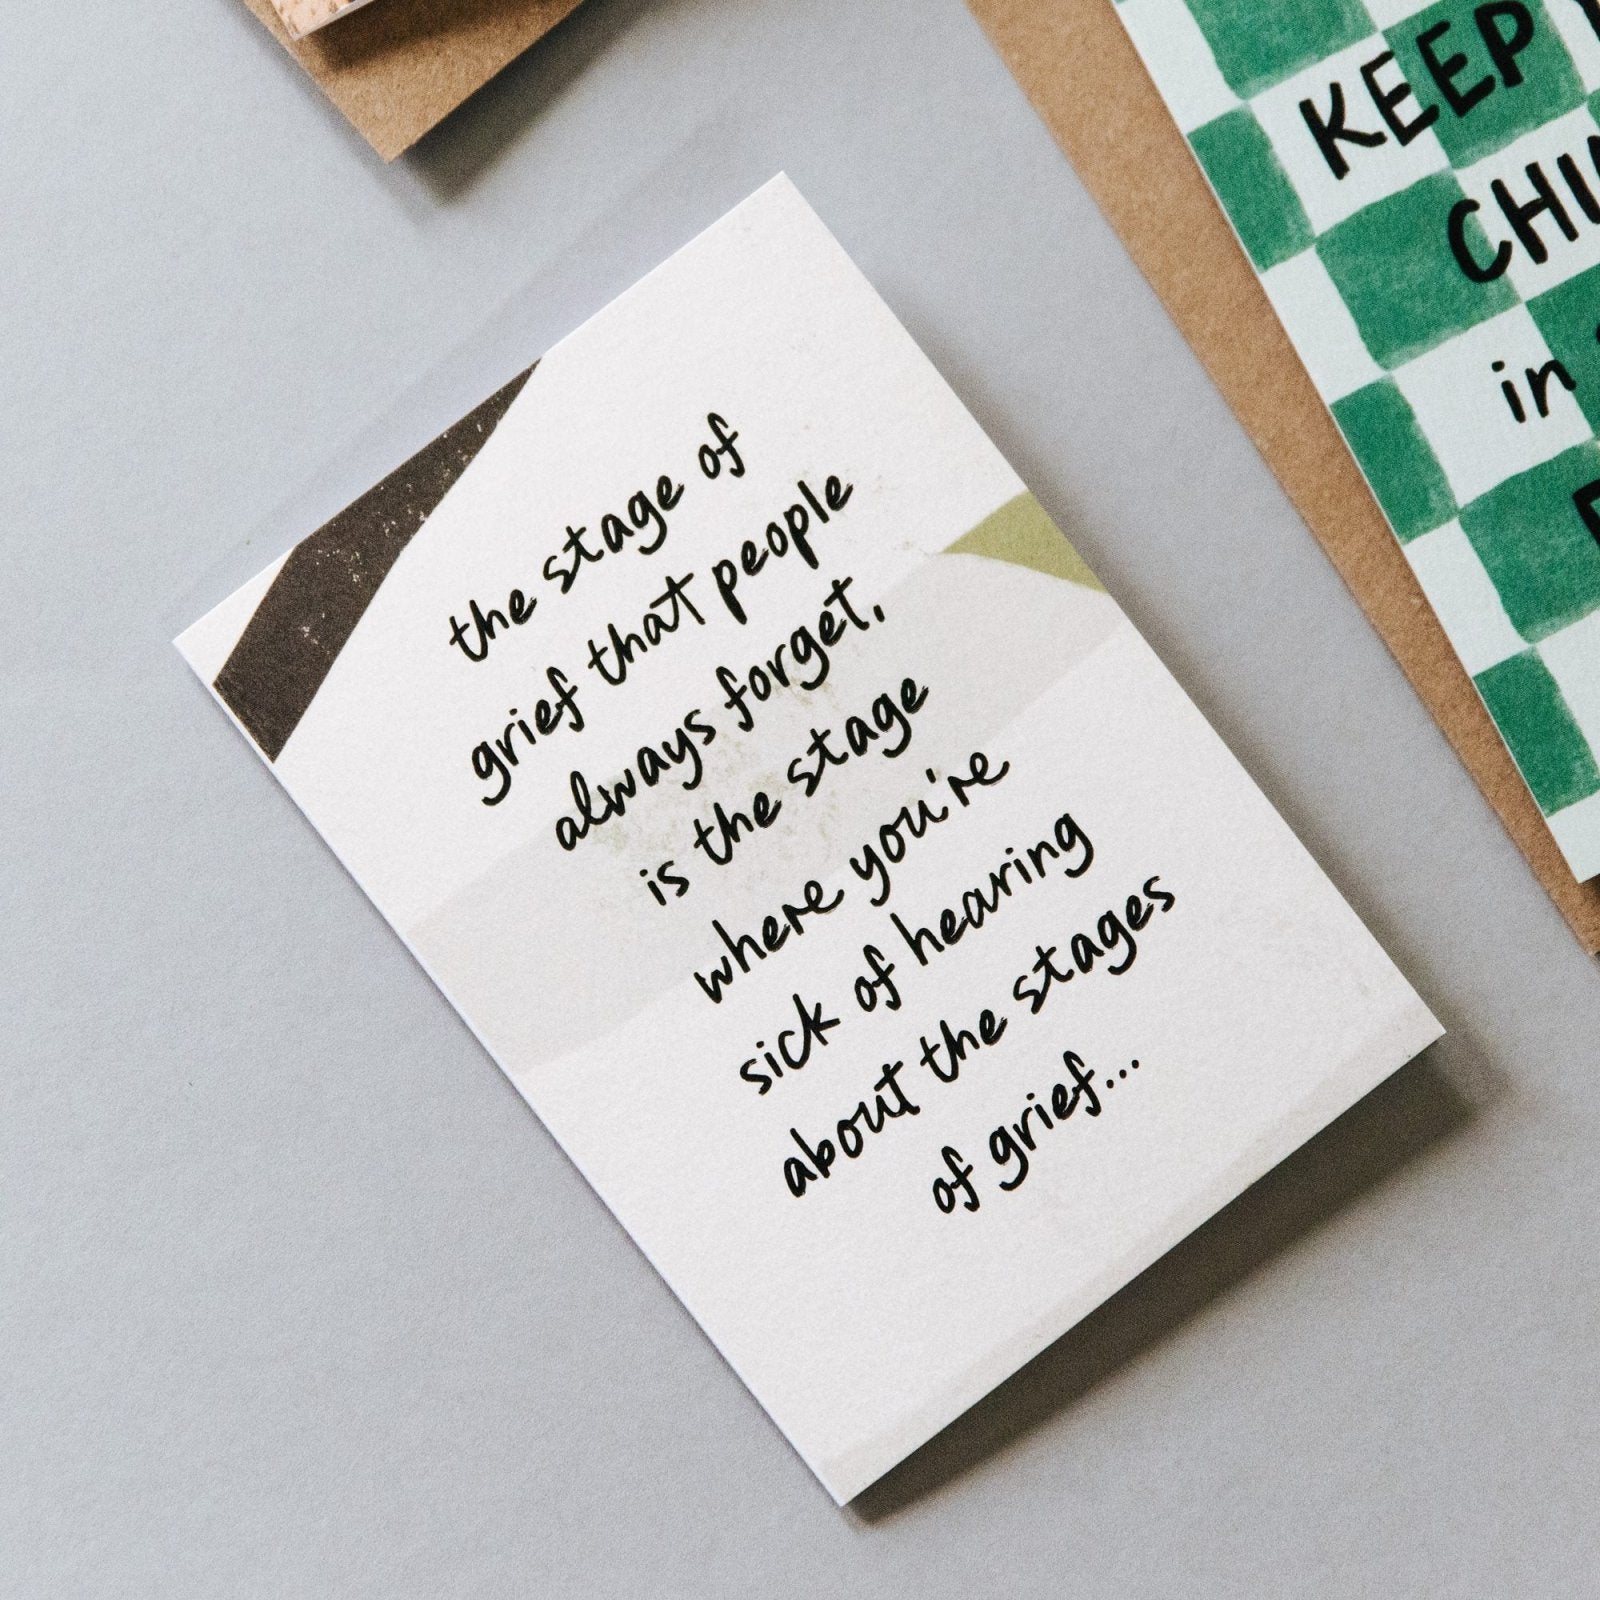 the stage of
grief that people
always forget,
is the stage
where you're
sick of hearing
about the stages
of grief...
KEEP
in